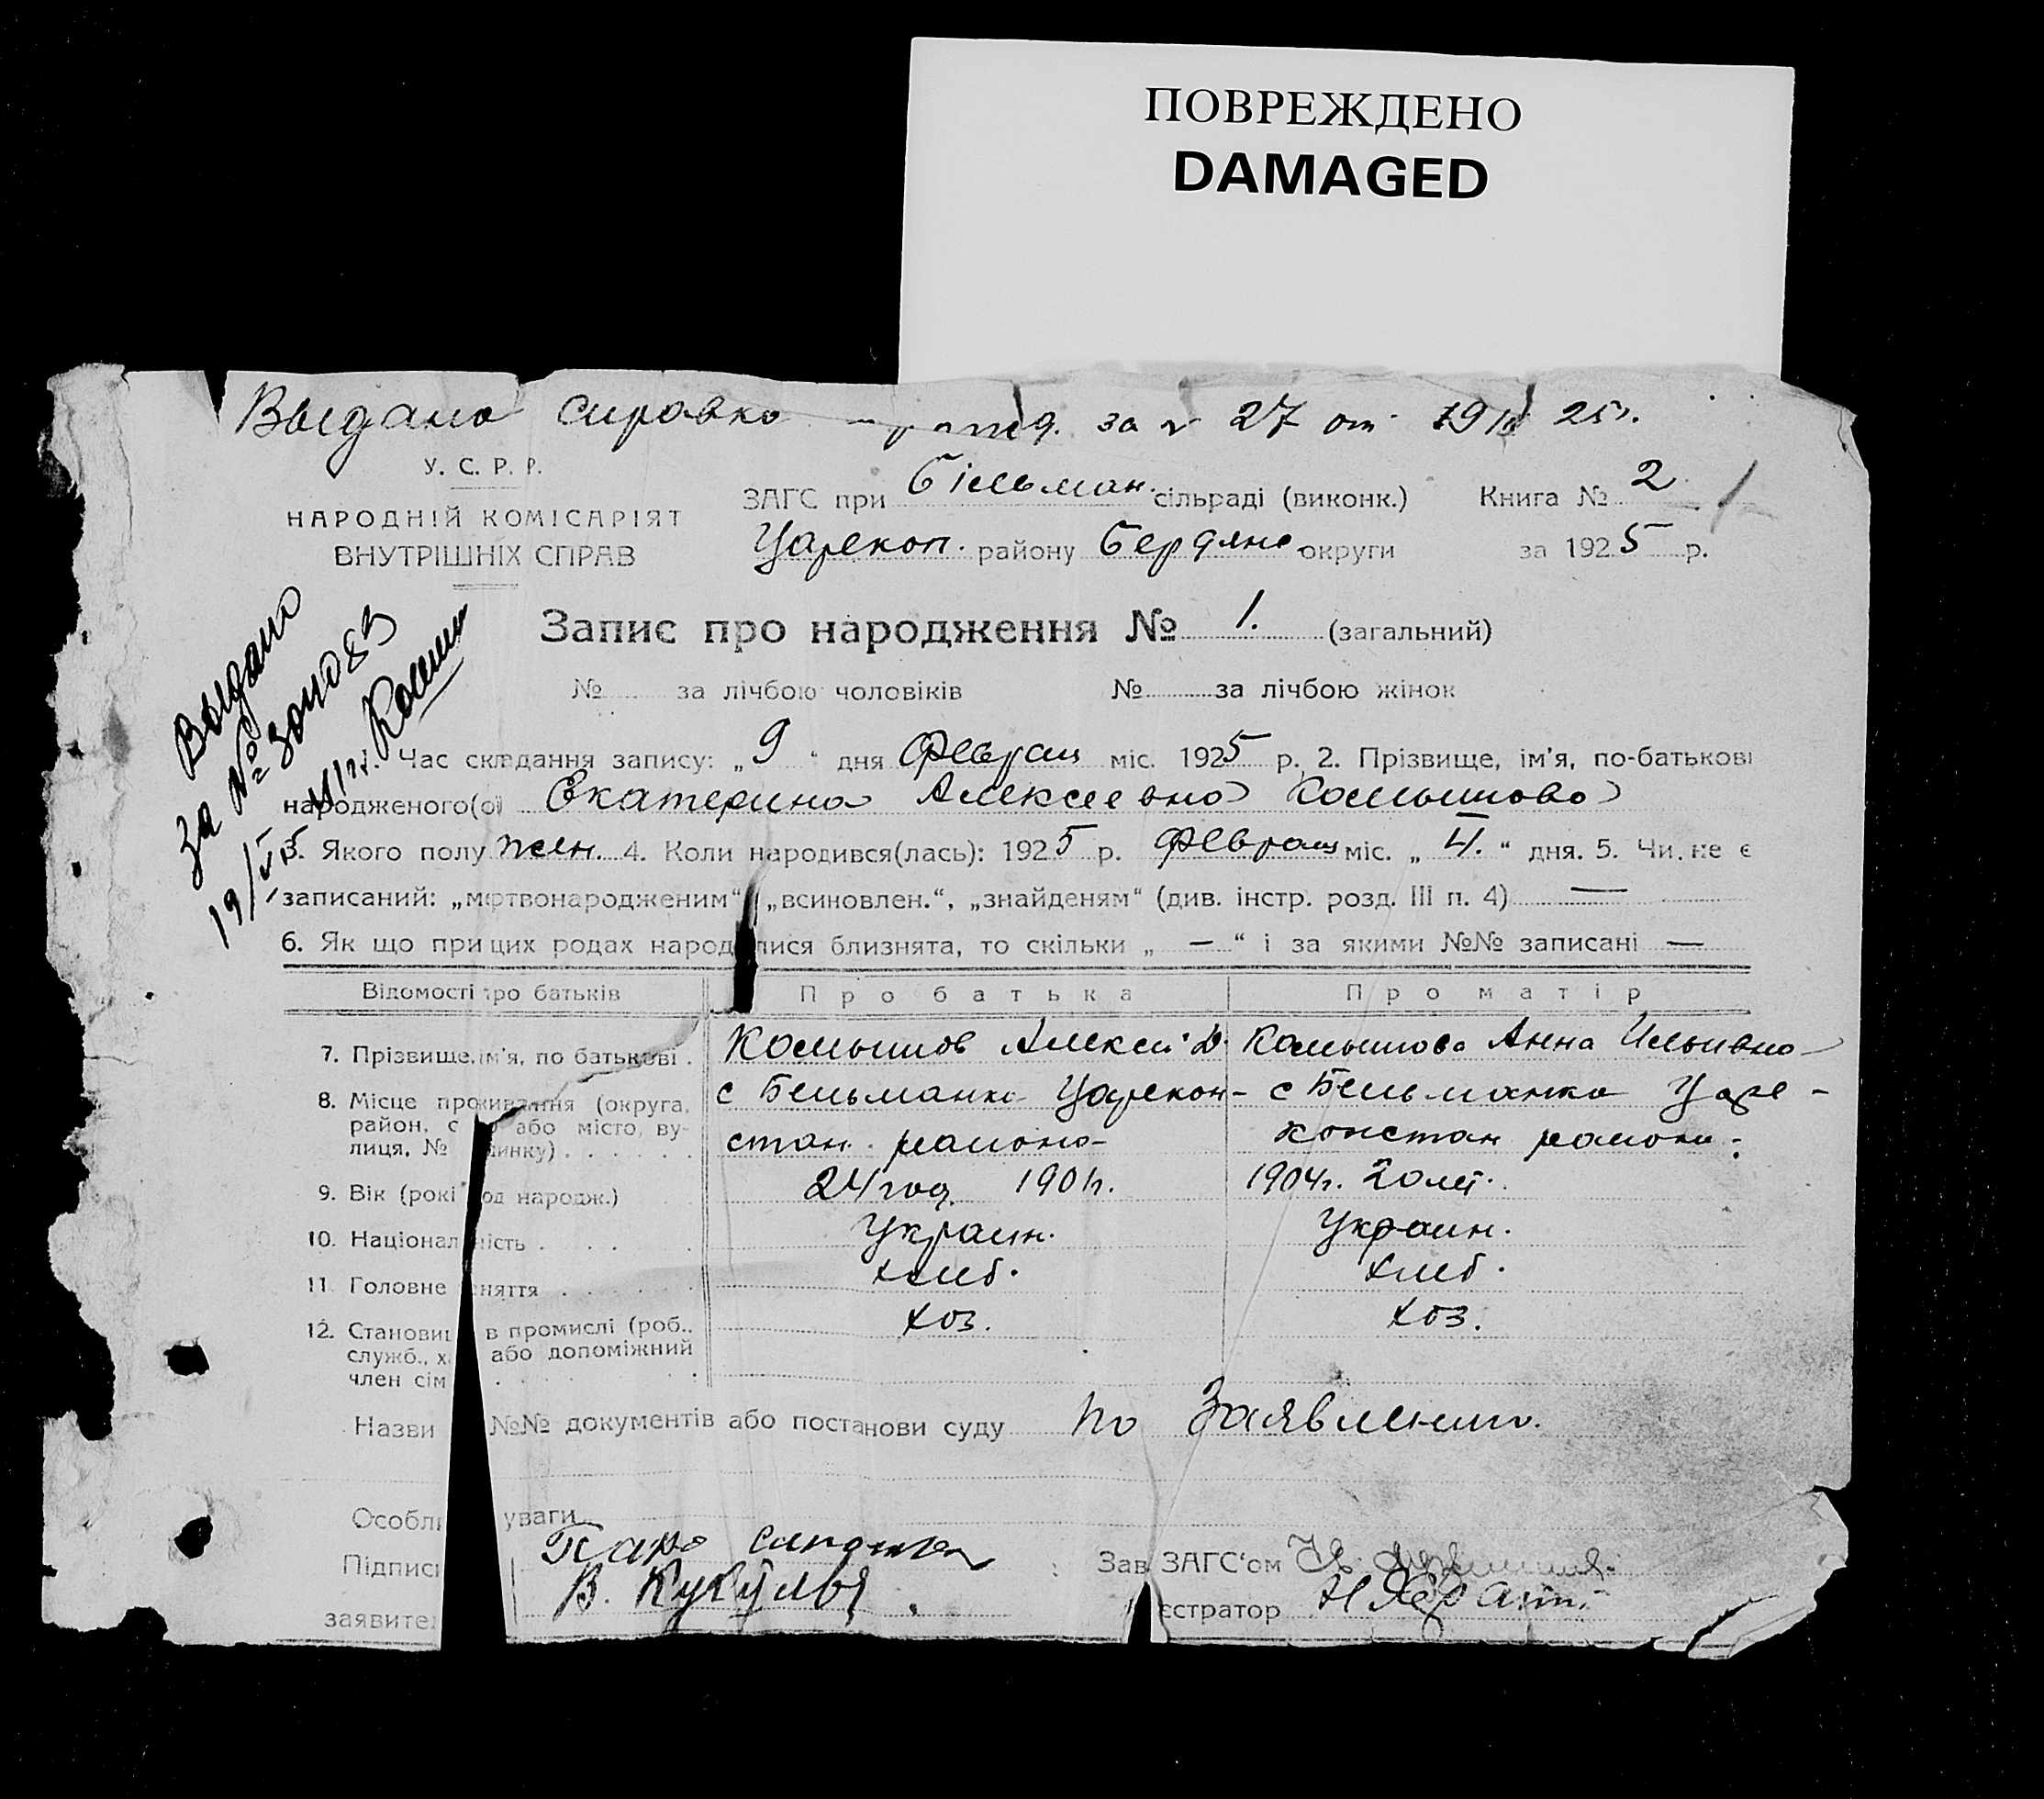 ПОВРЕЖДЕНО
DAMAGED
Выдано справка за № 27 от 19 25г.
У. С. Р. Р.
НАРОДНІЙ КОМІСАРІЯТ
ВНУТРІШНІХ СПРАВ
ЗАГС при Більман. сільраді (виконк.) Книга № 2
Царекон. району Бердянс округи за 1925 р.
Выдано
за №
Запис про народження № 1. (загальний)
№ за лічбою чоловіків № за лічбою жінок
Час складання запису: „9“ дня Феврал міс. 1925 р. 2. Прізвище, ім'я, по-батькові
народженого(ої) Екатерина Алексеевна
3. Якого полу жен. 4. Коли народився(лась): 1925 р. Феврал міс. „ 4. “ дня. 5. Чи не є
записаний: „мертвонародженим“ „всиновлен.“, „знайденям“ (див. інстр. розд. III п. 4) —
6. Як що при цих родах народилися близнята, то скільки „ — “ і за якими №№ записані —
Відомості про батьків Про батька Про матір
7. Прізвище, ім'я, по батькові . Алексей Д. Анна Ильивна
8. Місце проживання (округа, с Бельманка Царекон- с Бельманка Царе-
район, с або місто, ву- стан. района констан района
лиця, № динку) . . . . . .
9. Вік (рокі од народж.) 24 год 1901г. 1904г. 20 лет.
10. Націонал ність . . . . Украин. Украин.
11. Головне няття . . . . . хлеб. хлеб.
12. Станови в промислі (роб., хоз. хоз.
служб., х або допоміжний
член сім . . . . . .
Назви №№ документів або постанови суду по Заявлению.
Особли уваги
Підписи Зав. ЗАГС'ом
заявите В. єстратор